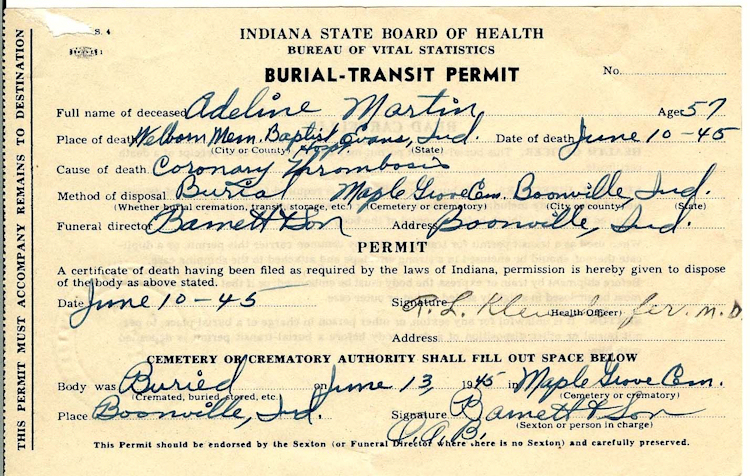 S. 4
INDIANA STATE BOARD OF HEALTH
BUREAU OF VITAL STATISTICS
BURIAL-TRANSIT PERMIT
No.
Full name of deceased Adeline Martin Age 57
Place of death Welborn Mem. Baptist Hosp. Evans, Ind. Date of death June 10-45
(City or County) (State)
Cause of death Coronary Thrombosis
Method of disposal Burial Maple Grove Cem. Boonville, Ind.
(Whether burial cremation, transit, storage, etc.) (Cemetery or crematory) (City or county) (State)
Funeral director Barnett & Son Address Boonville, Ind.
PERMIT
A certificate of death having been filed as required by the laws of Indiana, permission is hereby given to dispose
of the body as above stated.
Date June 10-45 Signature M.D.
(Health Officer)
Address
CEMETERY OR CREMATORY AUTHORITY SHALL FILL OUT SPACE BELOW
Body was Buried on June 13, 1945 in Maple Grove Cem.
(Cremated, buried, stored, etc.) (Cemetery or crematory)
Place Boonville, Ind. Signature Barnett & Son
(Sexton or person in charge)
This Permit should be endorsed by the Sexton (or Funeral Director where there is no Sexton) and carefully preserved.
THIS PERMIT MUST ACCOMPANY REMAINS TO DESTINATION